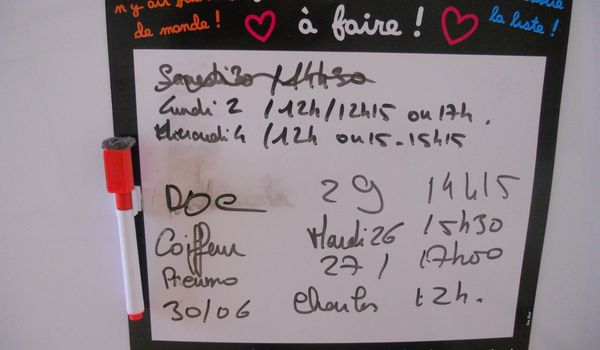 n'y ait
de monde !
à faire !
la liste !
Samedi 30 / 14h30
Lundi 2 / 12h / 12h15 ou 17h.
Mercredi 4 / 12h ou 15 - 15h15
DOC 29 14h15
Coiffeur Mardi 26 15h30
Pneumo 27 / 17h00
30/06 Charles 12h.